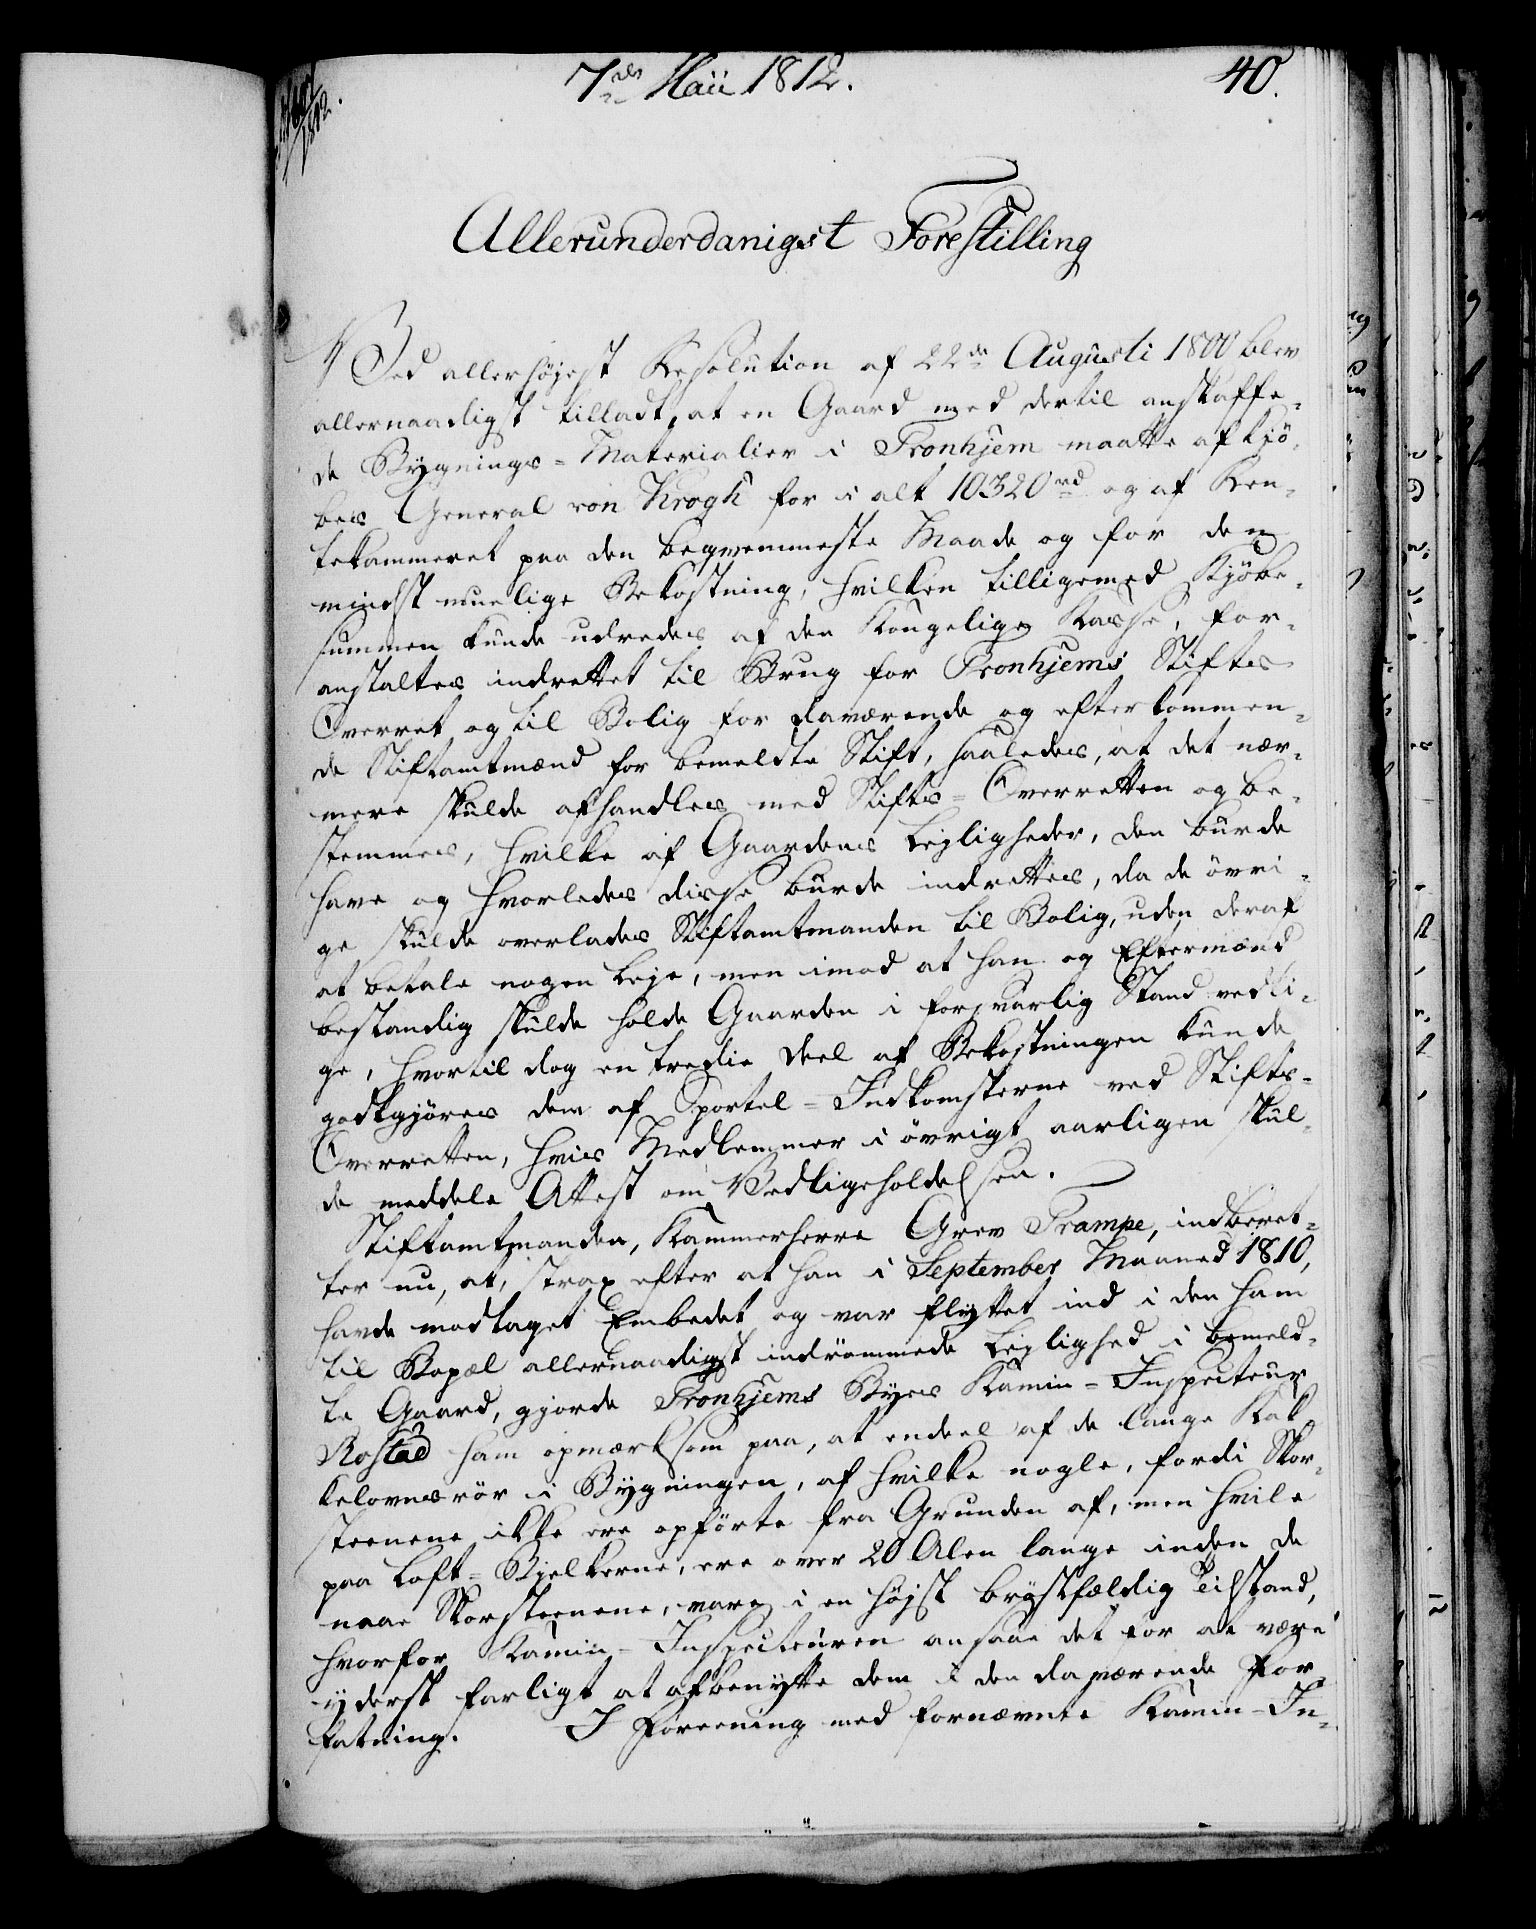 7de Maii 1812.
40.
1812.
Allerunderdanigst Forestilling
Ved allerhøjest Resolution af 22de Augusti 1800 blev
allernaadigst tilladt, at en Gaard med dertil anskaffe-
de Bygnings-Materialier i Tronhjem maatte afkjö-
bes General von Krogh for i alt 10320 rd og af Ren-
tekammeret paa den beqvemmeste Maade og for den
mindst muelige Bekostning, hvilken tilligemed Kjöbe-
summen kunde udredes af den Kongelige Kasse, for-
anstaltes indrettet til Brug for Tronhjems Stifts
Overret og til Bolig for daværende og efterkommen-
de Stiftamtmænd for bemeldte Stift, saaledes, at det nær-
mere skulde afhandles med Stifts-Overretten og be-
stemmes, hvilke af Gaardens Lejligheder, den burde
have og hvorledes disse burde indrettes, da de övri-
ge skulde overlades Stiftamtmanden til Bolig, uden deraf
at betale nogen Leje, men imod at han og Eftermænd
bestandig skulde holde Gaarden i forsvarlig Stand vedli-
ge, hvortil dog en tredie Deel af Bekostningen kunde
godtgjöres dem af Sportel-Indkomsterne ved Stifts-
Overretten, hvis Medlemmer i övrigt aarligen skul-
de meddele Attest om Vedligeholdelsen.
Stiftamtmanden, Kammerherre Grev Trampe, indberet-
ter nu, at, strax efter at han i September Maaned 1810,
havde modtaget Embedet og var flyttet ind i den ham
til Bopæl allernaadigst indrömmede Lejlighed i bemeld-
te Gaard, gjorde Tronhjems Byes Kamin-Inspecteur
Rostad ham opmærksom paa, at endeel af de lange Kak-
kelovnsrör i Bygningen, af hvilke nogle, fordi Skor-
steenene ikke ere opförte fra Grunden af, men hvile
paa Loft-Bjelkerne, ere over 20 Alen lange inden de
naae Skorsteenene, vare i en höjst bröstfældig Tilstand,
hvorfor Kamin-Inspecteuren ansaae det for at være
yderst farligt at afbenytte dem i den daværende For-
fatning. I Foreening med fornævnte Kamin-In-